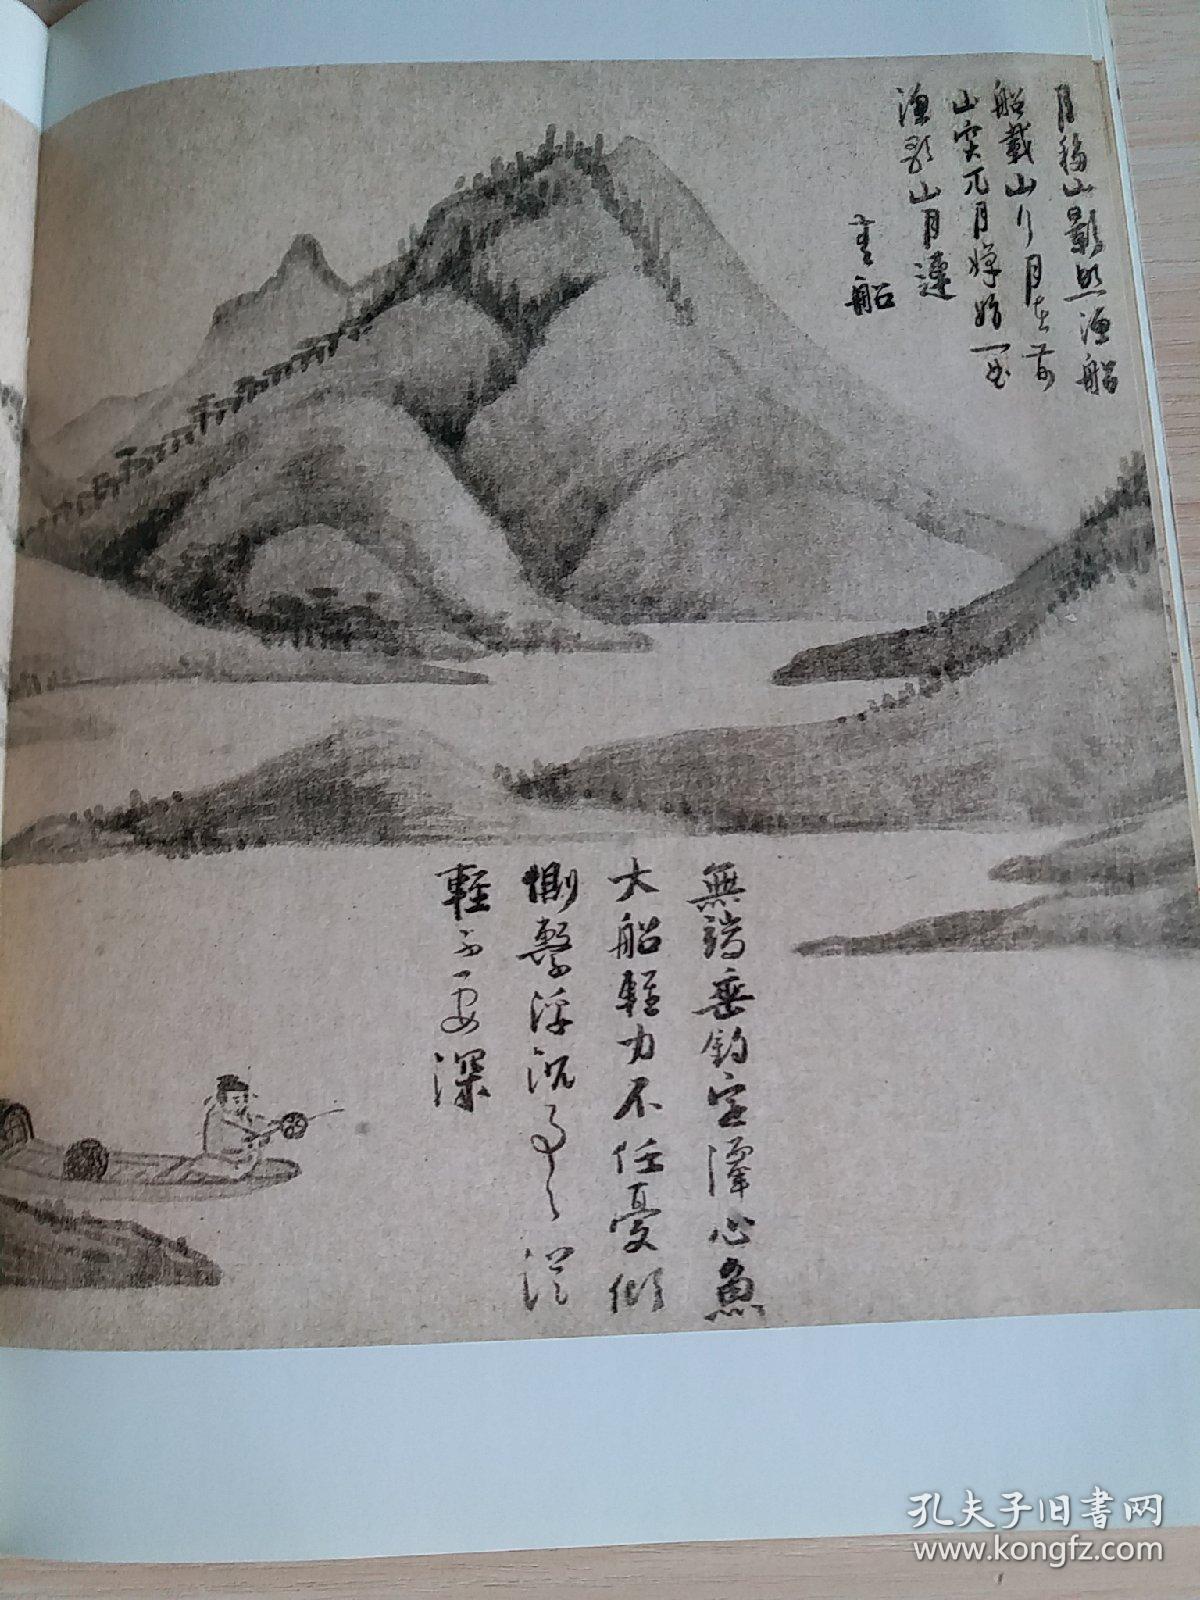 月移山影照漁船
船載山行月在前
山突兀月嬋娟一曲
漁歌山月連
畫船
無端垂釣空潭心魚
大船輕力不任憂傾
惻繫浮沉事事從
輕不要深
孔夫子旧书网
www.kongfz.com